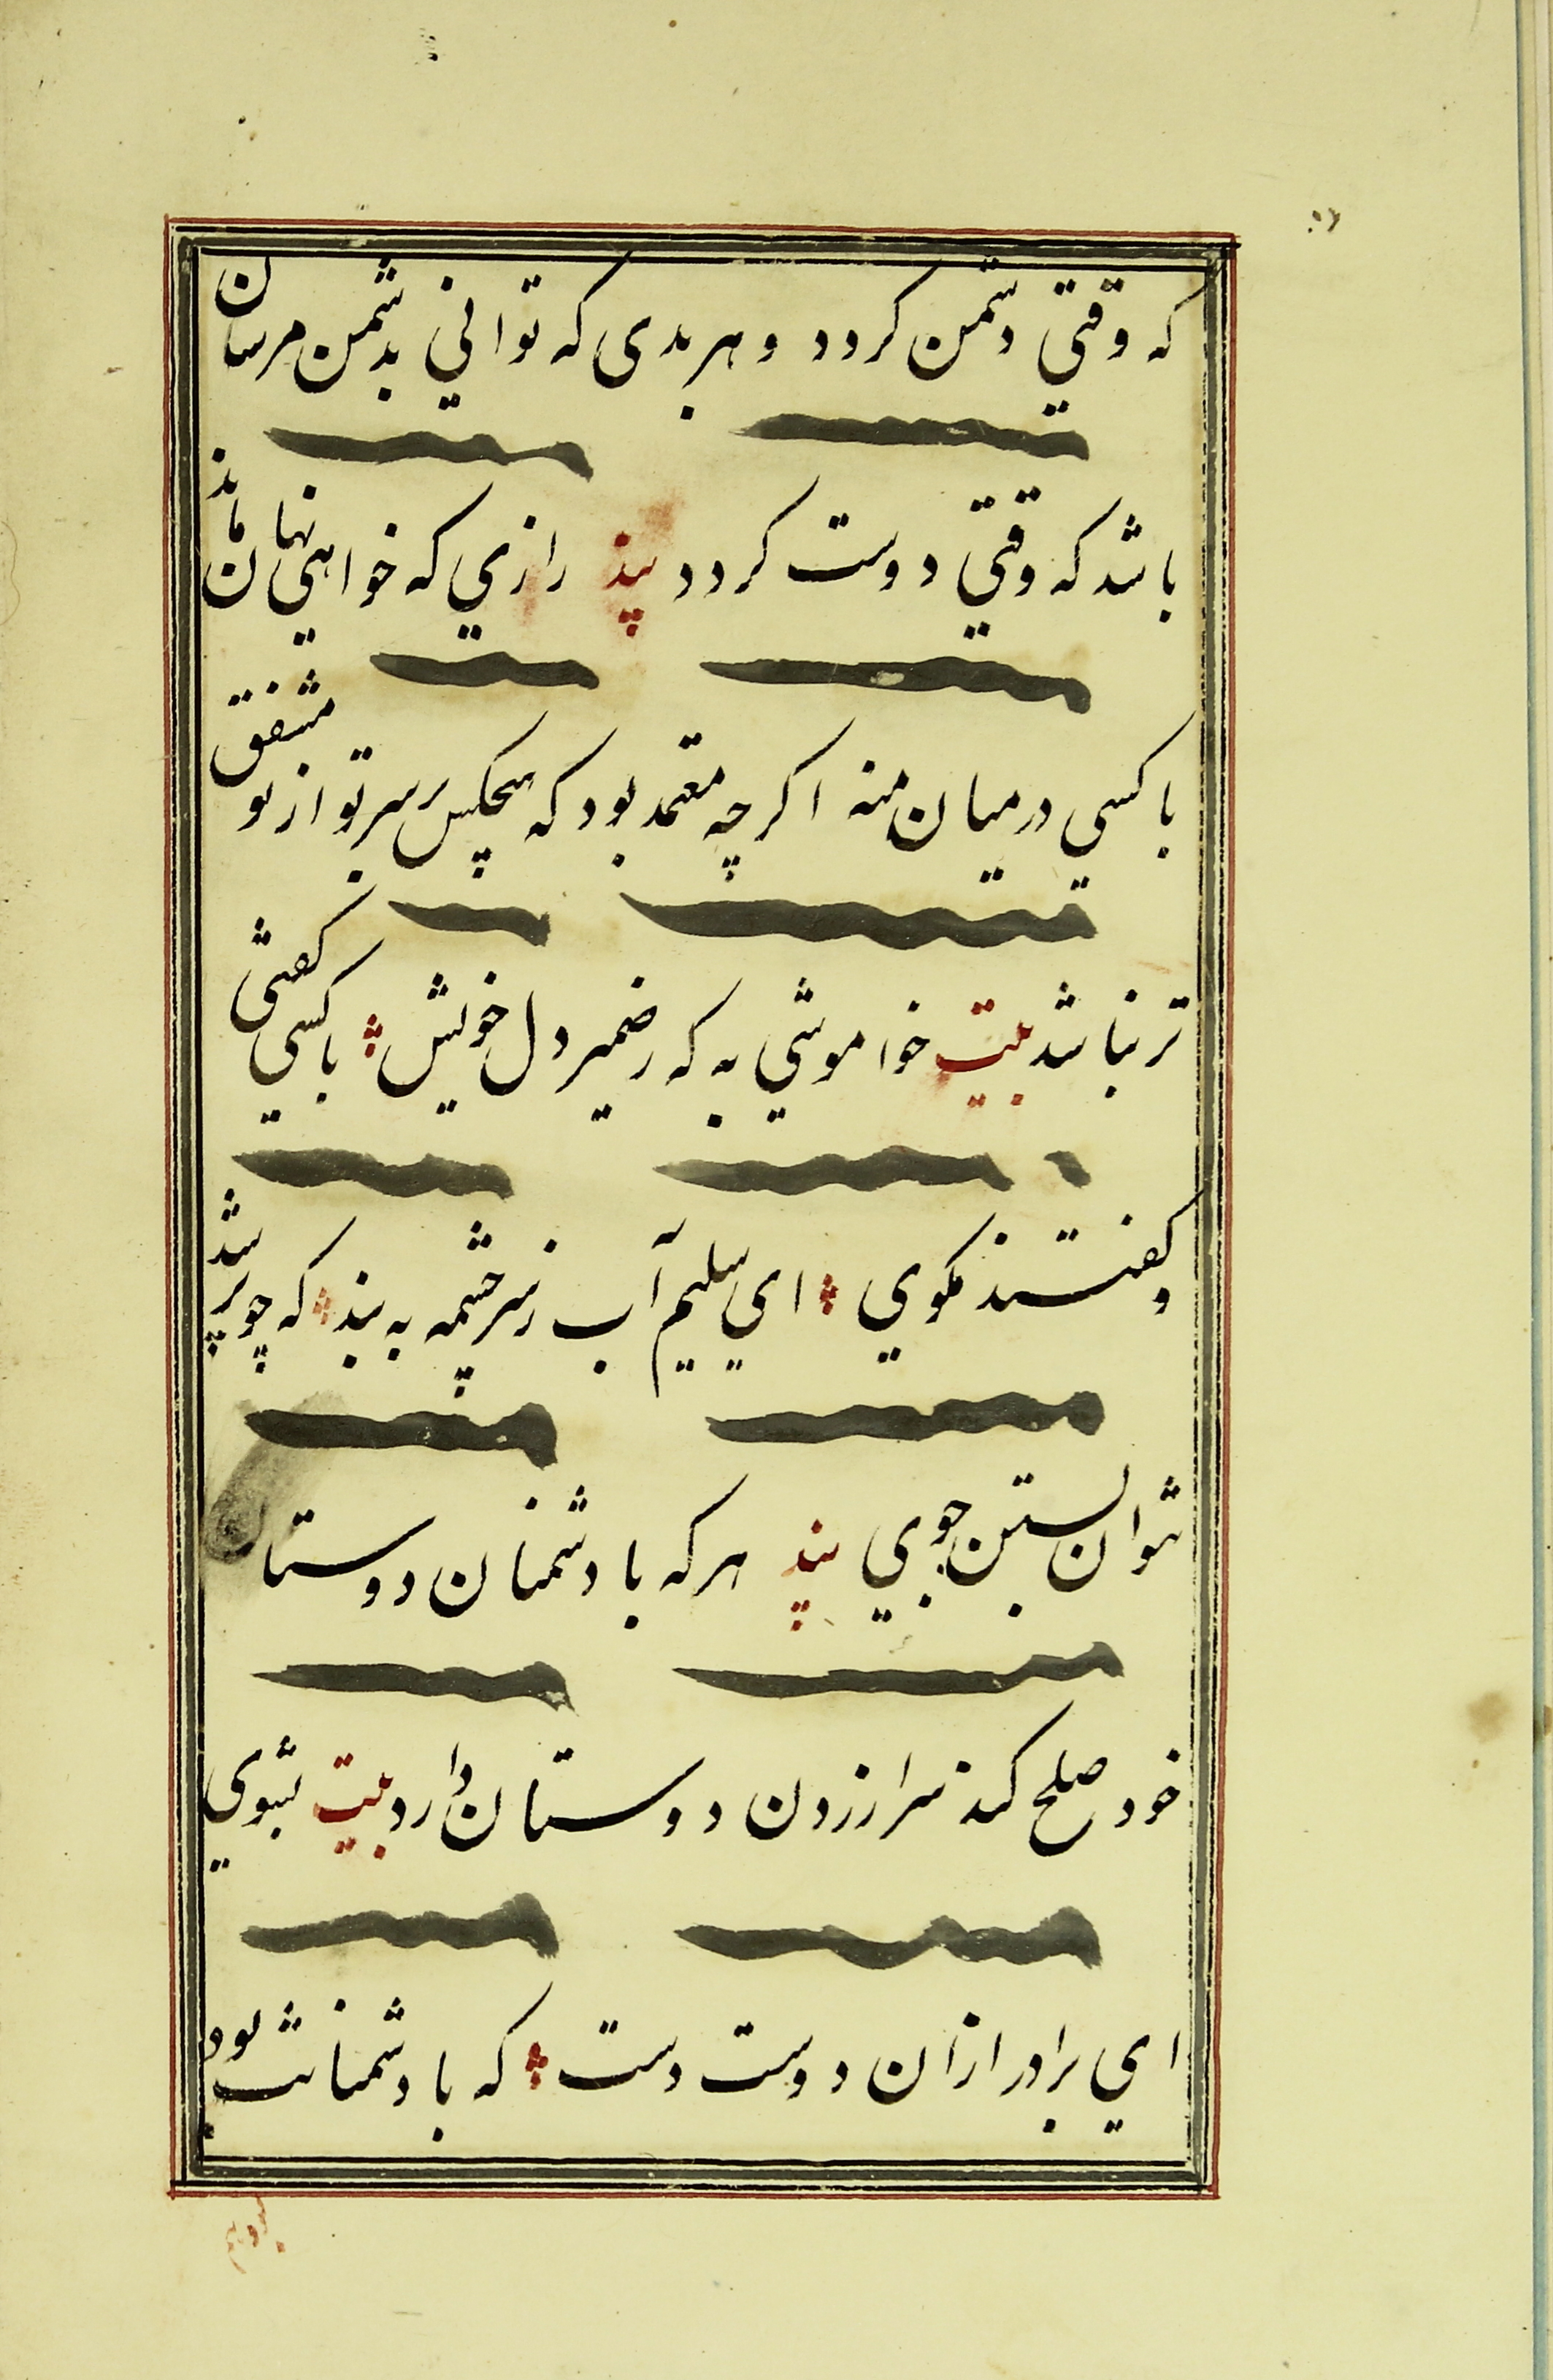 که وقتي دشمن کردد و هر بدی که تواني بدشمن مرسان
باشد که وقتي دوست کردد پند رازي که خواهي نهان ماند
با کسي درمیان منه اکرچه معتمد بود که هیچکس بر سر تو از تو مشفق
تر نباشد بیت خاموشي به که ضمیر دل خویش با کسي کفتی
و کفتند مکوي اي سلیم آب ز سر چشمه به بند که چو پر شد
نتوان بستن جوي پند هر که با دشمنان دوستان
خود صلح کند سر ازردن دوستان دارد بیت بشوي
اي برادر ازان دوست دست که با دشمنانت بود